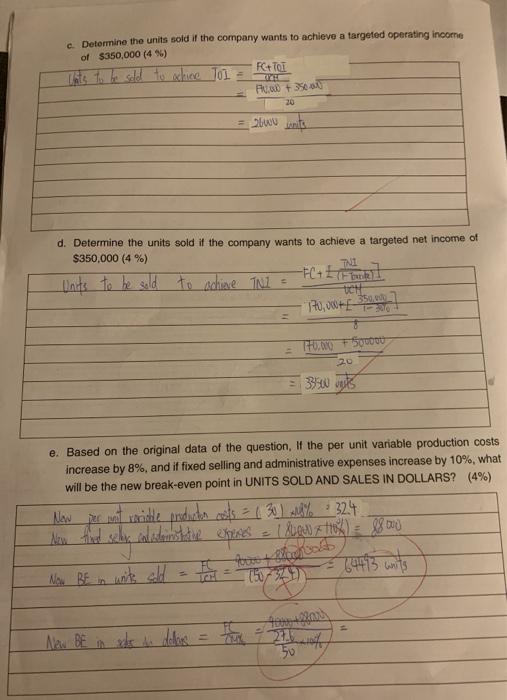 c. Determine the units sold if the company wants to achieve a targeted operating income
of $350,000 (4 %)
Units to be sold to achieve TOI = FC+TOI
UCM
= 170,000 + 350,000
20
= 26000 units
d. Determine the units sold if the company wants to achieve a targeted net income of
$350,000 (4 %)
Units to be sold to achieve TNI = FC+[ TNI
UCM
= 170,000+[ 350,000
1-30% ]
= 170,000 + 500000
20
= 33500 units
e. Based on the original data of the question, If the per unit variable production costs
increase by 8%, and if fixed selling and administrative expenses increase by 10%, what
will be the new break-even point in UNITS SOLD AND SALES IN DOLLARS? (4%)
New per unit variable production costs = ( 30 ) = 324
New fixed selling and administrative expenses = (80,000 x 110%) = 88000
New BE in units sold = FC
UCM = 90000 + 88000
= 64493 units
New BE in sales in dollars = FC = 90000+88000 =
50